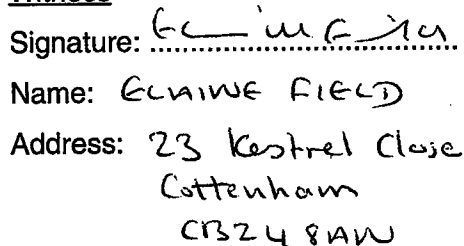 Witness
Signature:
Name: ELAINE FIELD
Address: 23 Kestrel Close
Cottenham
CB24 8AW